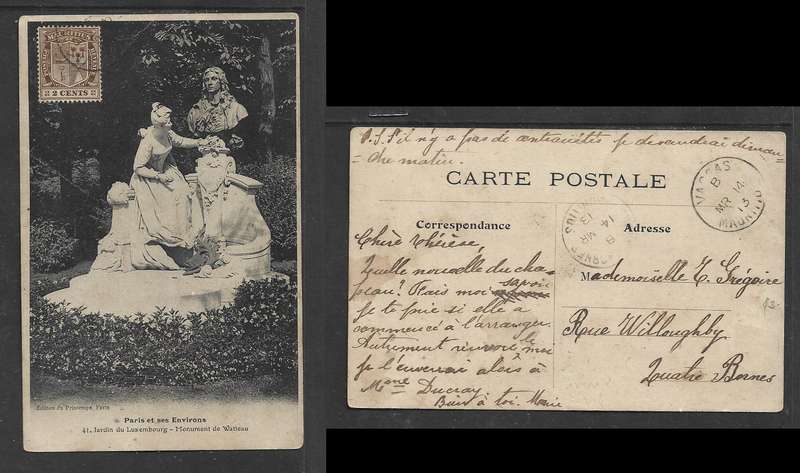 MAURITIUS
POSTAGE
REVENUE
2 CENTS
Edition du Printemps, Paris
Paris et ses Environs
41, Jardin du Luxembourg - Monument de Watteau
P.S. S'il n'y a pas de contrariétés je descendrai diman=
=che matin.
CARTE POSTALE
Correspondance
Adresse
VACOAS
B
MR 14
13
MAURITIUS
B
MR
14
13
Chère Thérèse,
Quelle nouvelle du cha=
peau? Fais moi savoir
je te prie si elle a
commencé à l'arranger.
Autrement renvoie le moi
je l'enverrai alors à
Mme Ducray
Bien à toi. Marie
Mademoiselle T. Grégoire
Rue Willoughby
Quatre Bornes